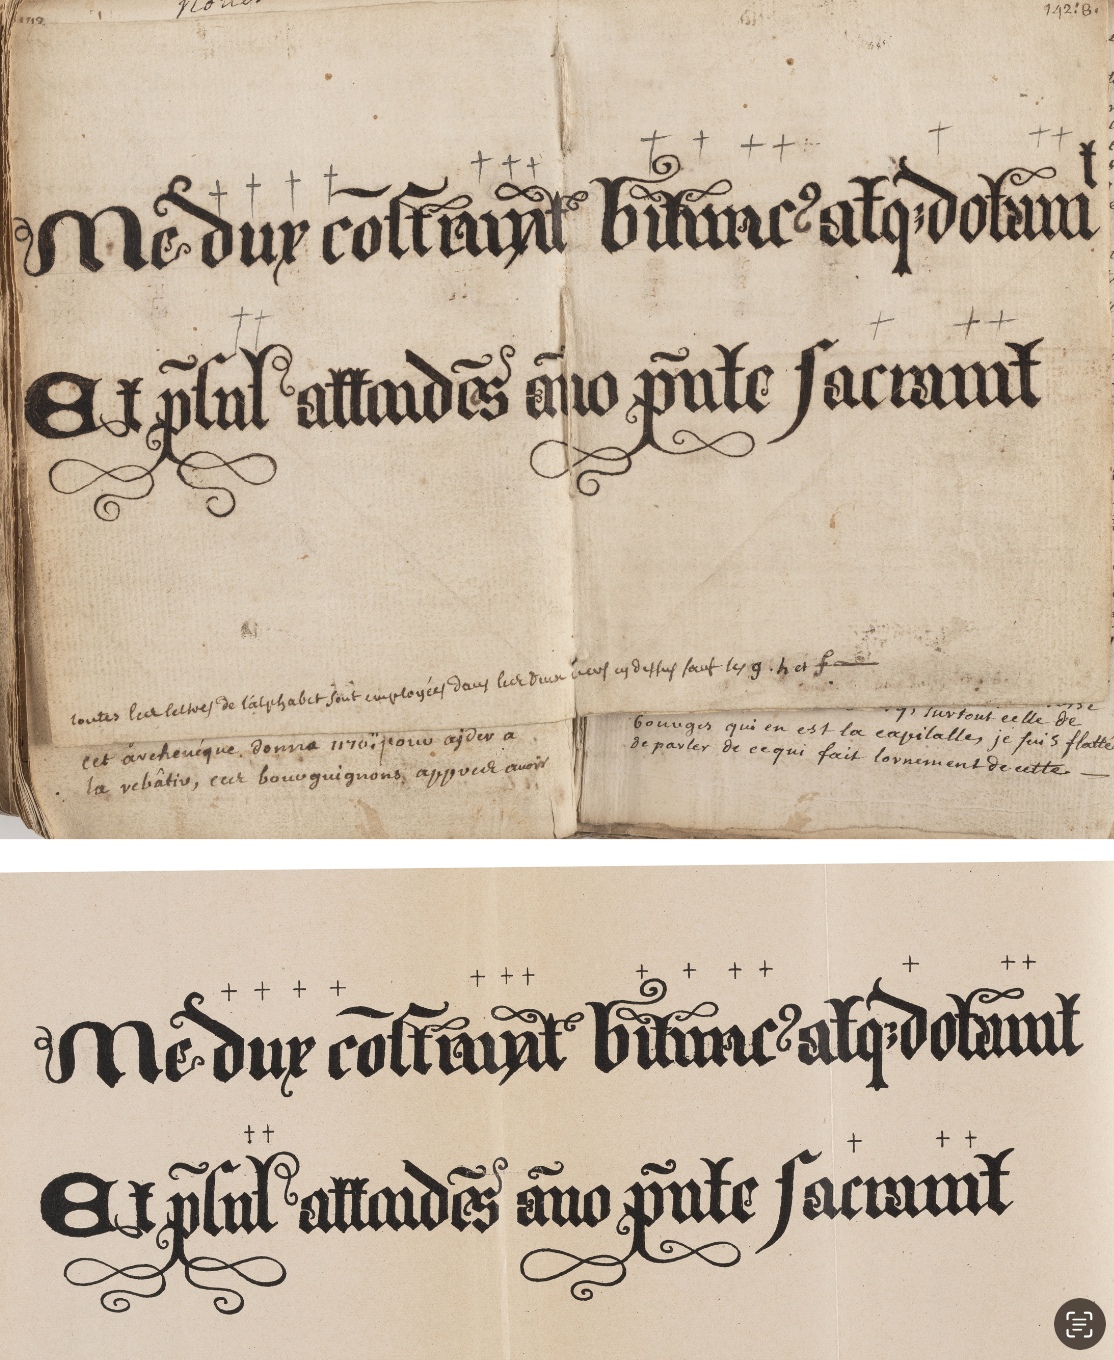 142:B.
Me dux cōstraīyt bitumīc⁹ atq; dolauit
Et p̄sul attendēs āno p̄nte sacrauit
toutes les lettres de l'alphabet sont employées dans les deux vers cy dessus sauf les g. h et f
cet archeveque donna 1170ᵗᵗ pour ajder a
la rebâtir, ces bourguignons, appres avoir
surtout celle de
bourges qui en est la capitalle, je suis flatté
de parler de ce qui fait lornement de cette
Me dux cōstraīyt bitumīc⁹ atq; dolauit
Et p̄sul attendēs āno p̄nte sacrauit